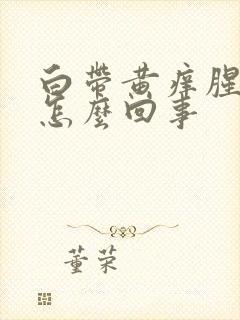 白帶黃痒腥
怎麼回事
董荣